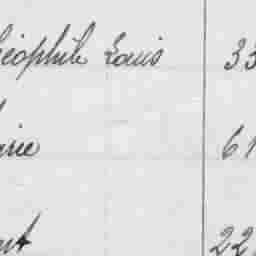 éophile Louis 33
rie 61
nt 22